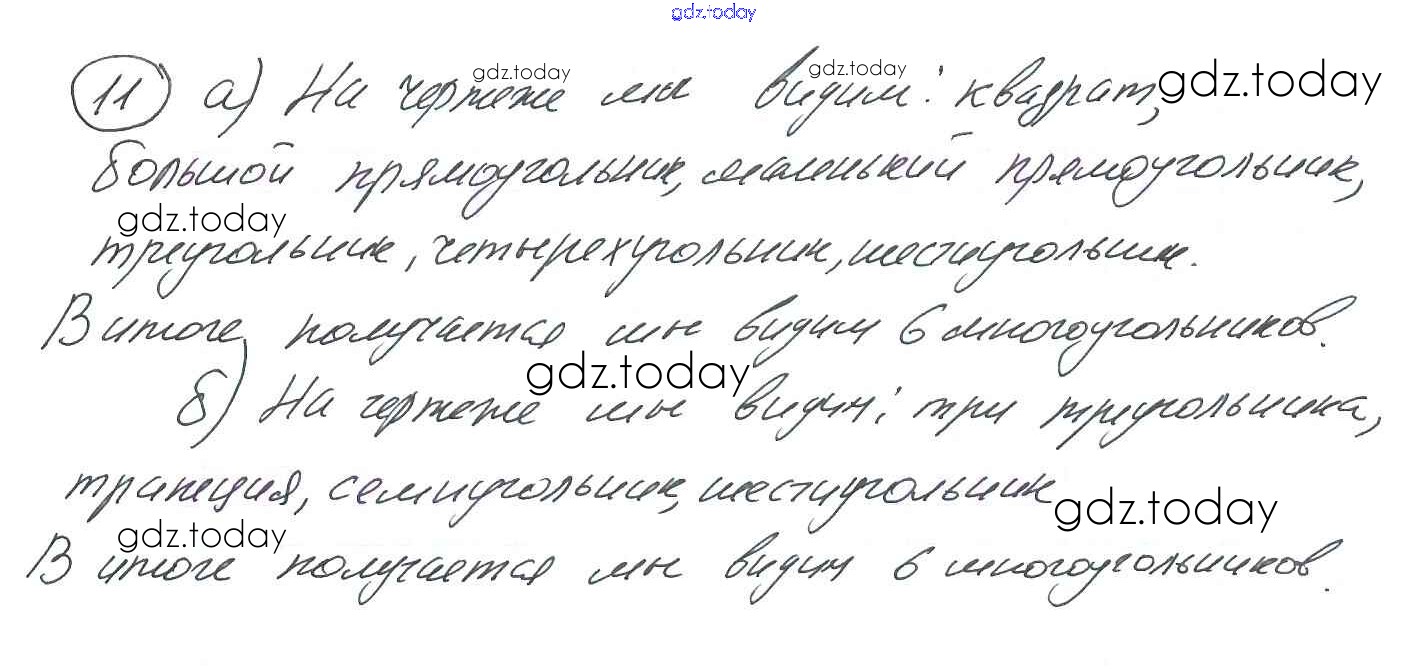 gdz.today
11 а) На чертеже мы видим: квадрат,
gdz.today gdz.today gdz.today
большой прямоугольник, маленький прямоугольник,
gdz.today
треугольник, четырехугольник, шестиугольник.
В итоге получается мы видим 6 многоугольников.
gdz.today
б) На чертеже мы видим: три треугольника,
трапеция, семиугольник, шестиугольник
gdz.today
gdz.today
В итоге получается мы видим 6 многоугольников.